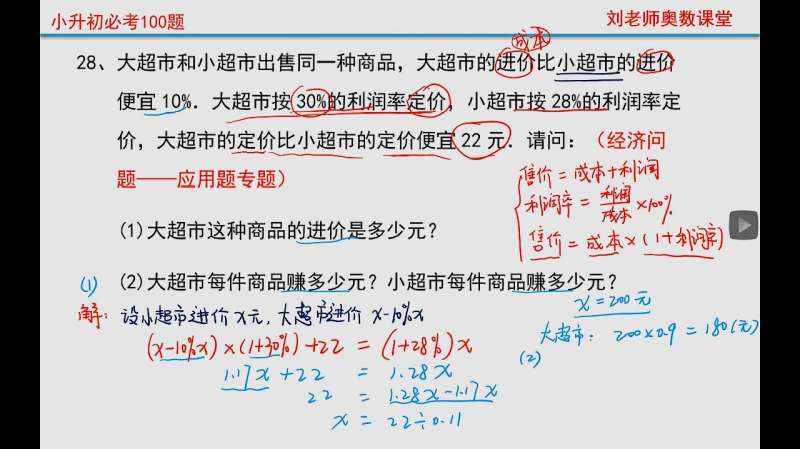 小升初必考100题
刘老师奥数课堂
成本
28、大超市和小超市出售同一种商品，大超市的进价比小超市的进价
便宜 10%．大超市按 30%的利润率定价，小超市按 28%的利润率定
价，大超市的定价比小超市的定价便宜 22 元．请问：（经济问
题——应用题专题）
售价=成本+利润
利润率=利润/成本×100%
售价=成本×(1+利润率)
(1)大超市这种商品的进价是多少元？
(2)大超市每件商品赚多少元？小超市每件商品赚多少元？
(1)
解：设小超市进价x元，大超市进价 x-10%x
(x-10%x)×(1+30%)+22 = (1+28%)x
1.17x+22 = 1.28x
22 = 1.28x-1.17x
x = 22÷0.11
x=200元
大超市：200×0.9=180(元)
(2)